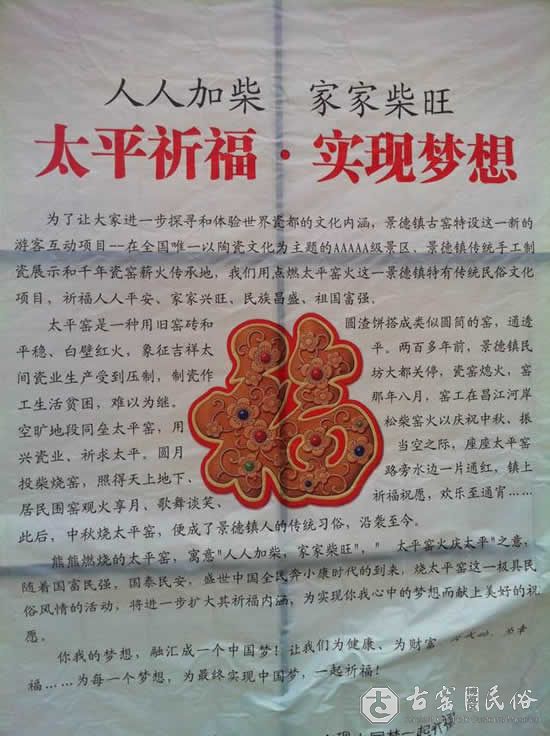 人人加柴 家家柴旺
太平祈福·实现梦想
为了让大家进一步探寻和体验世界瓷都的文化内涵，景德镇古窑特设这一新的
游客互动项目--在全国唯一以陶瓷文化为主题的AAAAA级景区、景德镇传统手工制
瓷展示和千年瓷窑薪火传承地，我们用点燃太平窑火这一景德镇特有传统民俗文化
项目，祈福人人平安、家家兴旺、民族昌盛、祖国富强。
太平窑是一种用旧窑砖和 圆渣饼搭成类似圆筒的窑，通透
平稳、白壁红火，象征吉祥太 平。两百多年前，景德镇民
间瓷业生产受到压制，制瓷作 坊大都关停，瓷窑熄火，窑
工生活贫困，难以为继。 那年八月，窑工在昌江河岸
空旷地段同垒太平窑，用 松柴窑火以庆祝中秋、振
兴瓷业、祈求太平。圆月 当空之际，座座太平窑
投柴烧窑，照得天上地下、 路旁水边一片通红，镇上
居民围窑观火享月、歌舞谈笑、 祈福祝愿，欢乐至通宵……
此后，中秋烧太平窑，便成了景德镇人的传统习俗，沿袭至今。
熊熊燃烧的太平窑，寓意"人人加柴，家家柴旺"，" 太平窑火庆太平"之意，
随着国富民强，国泰民安，盛世中国全民奔小康时代的到来，烧太平窑这一极具民
俗风情的活动，将进一步扩大其祈福内涵，为实现你我心中的梦想而献上美好的祝
愿。
福
你我的梦想，融汇成一个中国梦！让我们为健康、为财富
福……为每一个梦想，为最终实现中国梦，一起祈福！
古窑民俗